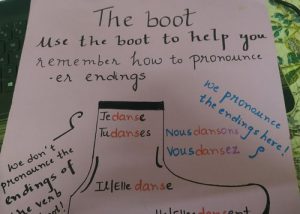 The boot
Use the boot to help you
remember how to pronounce
-er endings
we pronounce
the endings here!
we don't
pronounce the
endings of
the verb
Je danse
Tu danses
Nous dansons
Vous dansez
Il/Elle danse